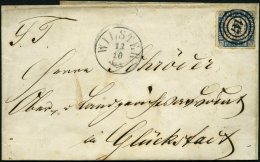 T. T.
WILSTER
12
10
Herrn Schröder
Ober u. Landgerichtsadvocat
in Glückstadt